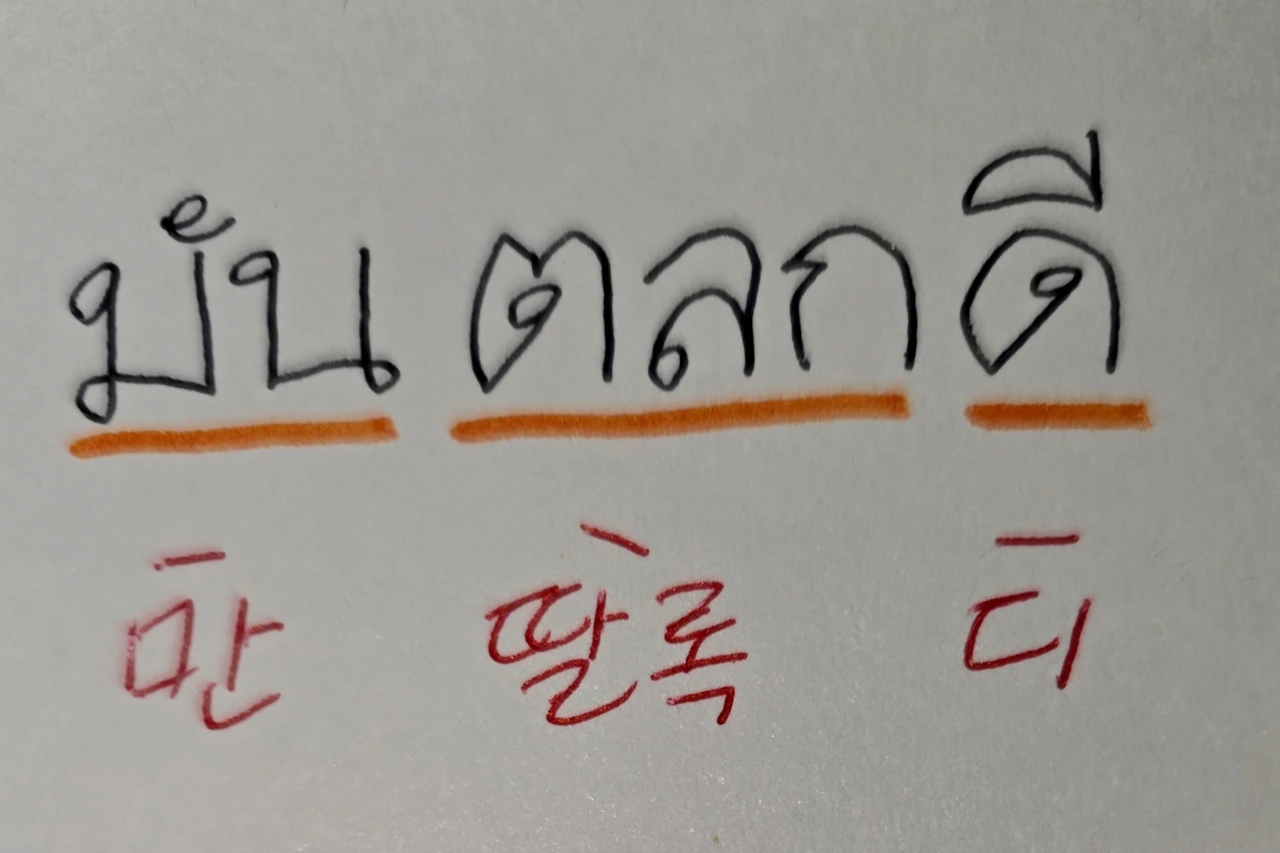 มันตลกดี
만 딸록 디